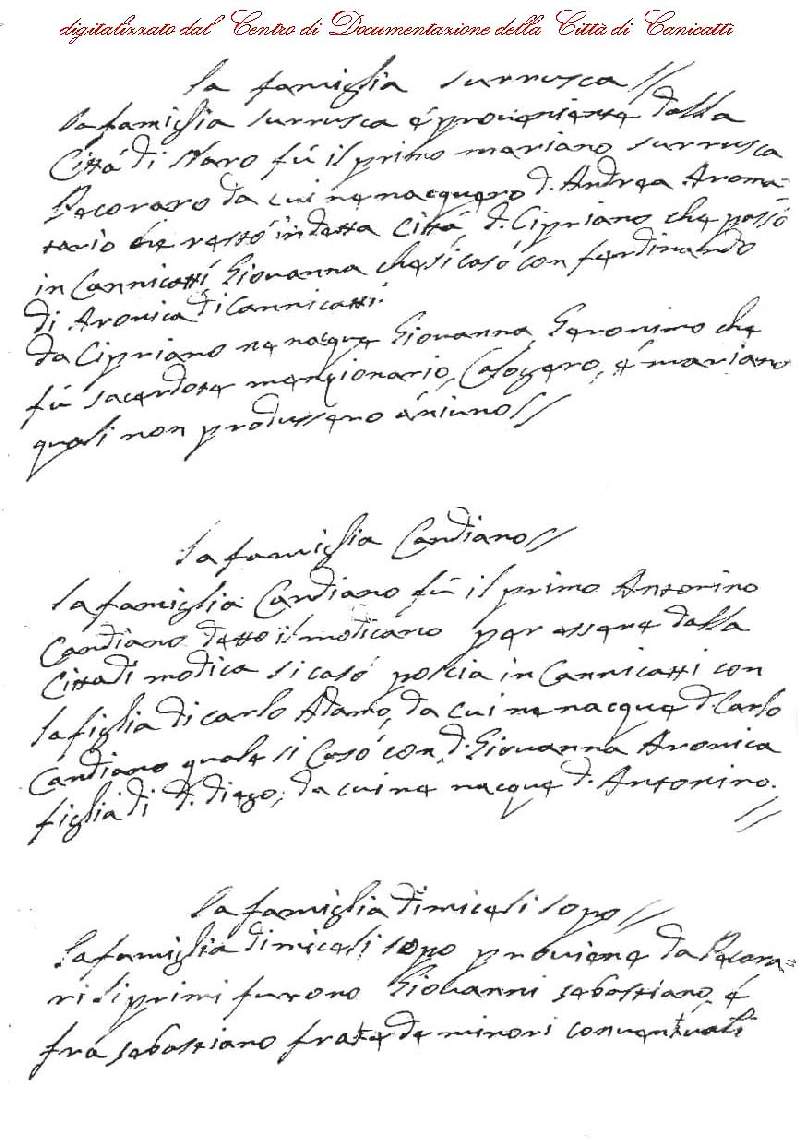 digitalizzato dal Centro di Documentazione della Città di Canicattì
la famiglia surrusca//
la famiglia surrusca é proueniente dalla
Città di Naro fú il primo mariano surrusca
Pecoraro da cui ne nacquero d. Andrea Aroma=
tario che restó in detta Città d. Cipriano che passó
in Cannicattí Giouanna che si casó con ferdinando
di Aronica di Cannicattí.
da Cipriano ne nacque Giouanna, Geronimo che
fú sacerdote mansionario, Calogero, é mariano
quali non produssero á niuno//
la famiglia Candiano//
la famiglia Candiano fú il primo Antonino
Candiano detto il moticano per essere dalla
Città di motica si casó poscia in Cannicatti con
la figlia di carlo Adamo, da cui ne nacque d. Carlo
Candiano quale si Casó con d. Giouanna Aronica
figlia di d. diego, da cui ne nacque d. Antonino.
//
la famiglia di miceli sopo//
la famiglia di miceli sopo prouiene da Pecora=
ri li primi furono Giouanni sebastiano, é
fra sebastiano frate de minori conuentuali